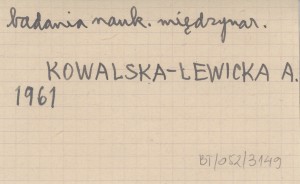 badania nauk. międzynar.
KOWALSKA-LEWICKA A.
1961
BT/052/3149